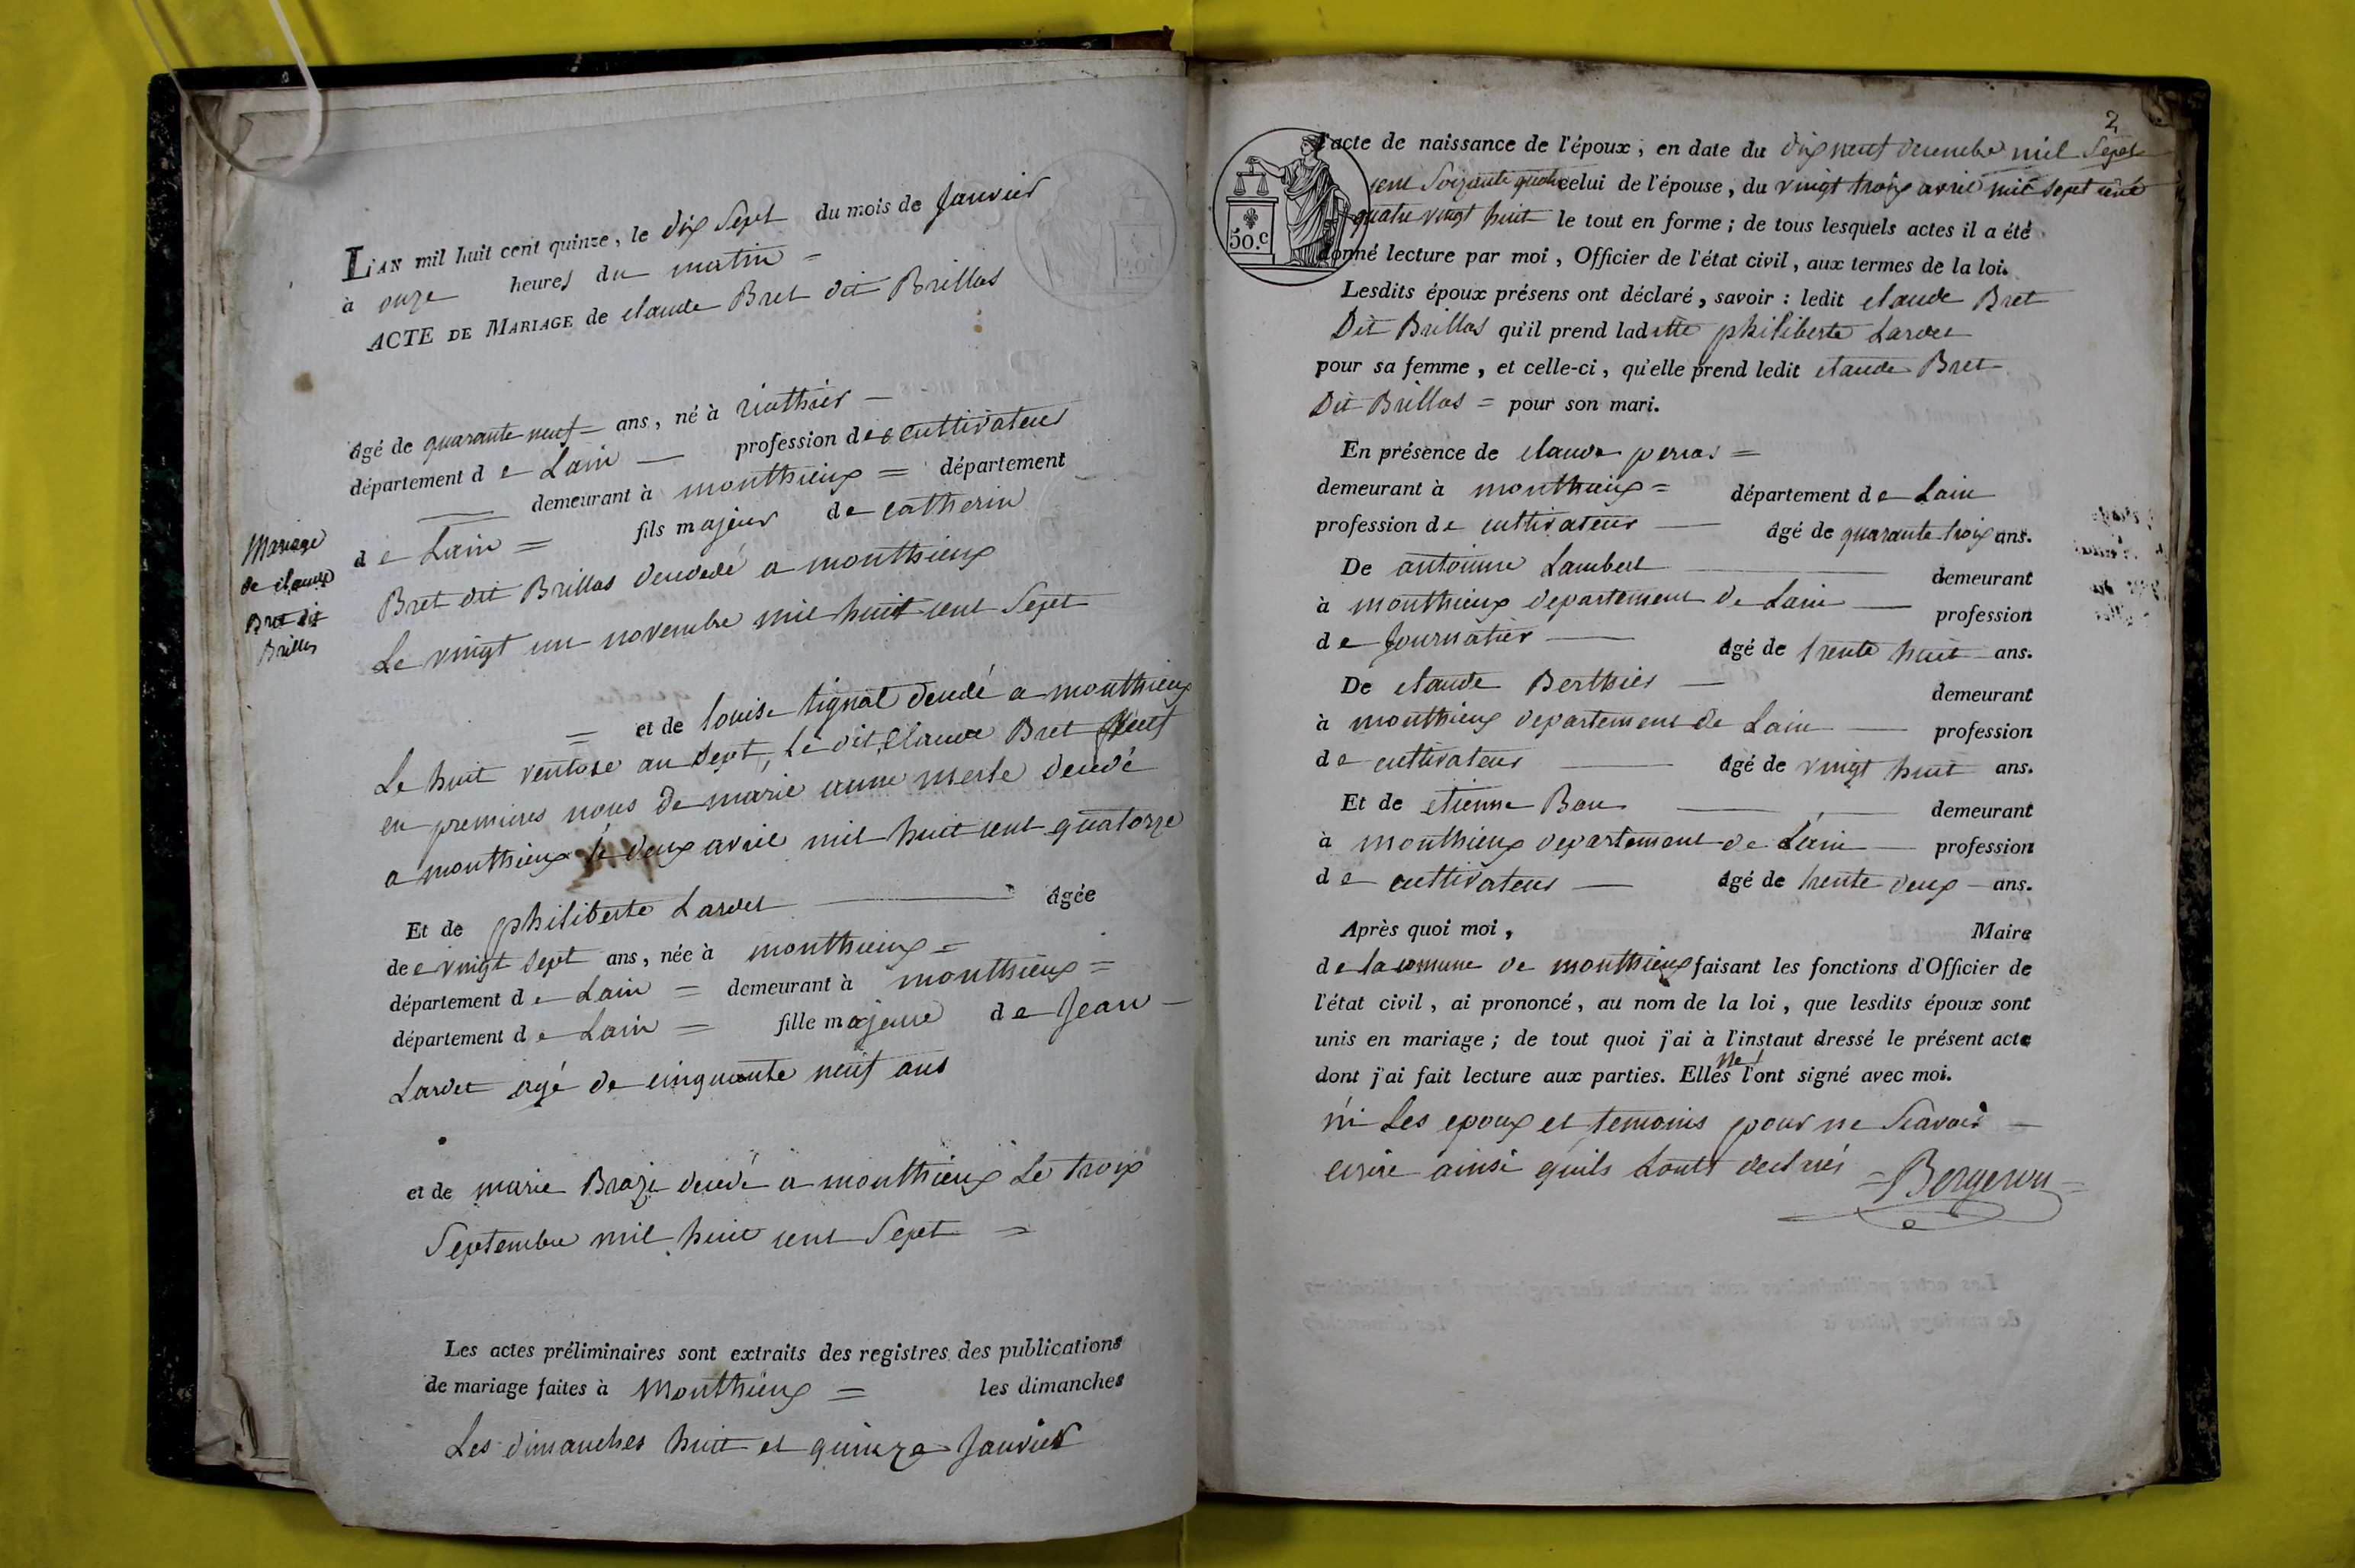 L'AN mil huit cent quinze, le dix Sept du mois de Janvier
à onze heures du matin =
ACTE DE MARIAGE de claude Bret dit Brillas
âgé de quarante neuf = ans, né à
département d e Lain — profession de cultivateur
— demeurant à monthieux = département
d e Lain = fils majeur de catherin
Bret dit Brillas à monthieux
Le vingt un novembre mil huit cent Sept
= et de louise tignat a monthieux
Le huit ventose an Sept, Le dit Claude Bret
en premieres de marie anne merle
a monthieux le deux avril mil huit cent quatorze
Mariage
de claude
Bret dit
Brillas
Et de philiberte Lardet — âgée
de vingt Sept ans, née à monthieux =
département d e Lain = demeurant à monthieux =
département d e Lain = fille majeure de Jean —
Lardet agé de cinquante neuf ans
et de marie a monthieux Le troix
Septembre mil huit cent Sept =
Les actes préliminaires sont extraits des registres des publications
de mariage faites à Monthieux = les dimanches
Les dimanches huit et quinze Janvier
2
l'acte de naissance de l'époux, en date du dix neuf decembre mil Sept
cent Soixante quatre celui de l'épouse, du vingt troix avril mil Sept cent
quatre vingt huit le tout en forme ; de tous lesquels actes il a été
donné lecture par moi, Officier de l'état civil, aux termes de la loi.
50.c
Lesdits époux présens ont déclaré, savoir : ledit claude Bret
Dit Brillas qu'il prend laditte philiberte Lardet
pour sa femme, et celle-ci, qu'elle prend ledit claude Bret
Dit Brillas = pour son mari.
En présence de claude perras =
demeurant à monthieux = département de Lain
profession de cultivateur — âgé de quarante troix ans.
De antoinne Lambert — demeurant
à monthieux departement de Lain — profession
de Journalier — âgé de trente huit ans.
De claude Berthier — demeurant
à monthieux departement de Lain — profession
de cultivateur — âgé de vingt huit ans.
Et de etienne — demeurant
à monthieux departement de Lain — profession
de cultivateur — âgé de trente deux ans.
Après quoi moi, Maire
de la comune de monthieux faisant les fonctions d'Officier de
l'état civil, ai prononcé, au nom de la loi, que lesdits époux sont
unis en mariage ; de tout quoi j'ai à l'instaut dressé le présent acte
dont j'ai fait lecture aux parties. Elles ne l'ont signé avec moi.
ni Les epoux et temoins pour ne Scavoir —
ecrire ainsi quils Lonts
=Bergeron=